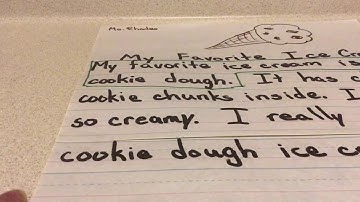 My Favorite Ice Cr
My favorite ice cream is
cookie dough. It has c
cookie chunks inside. I
so creamy. I really
cookie dough ice cr